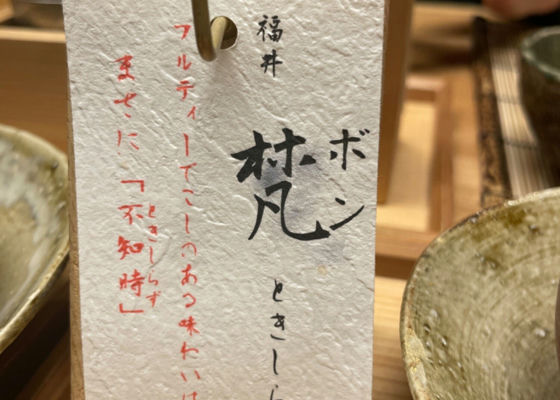 福井
梵
ボン
ときしら
フルティーでこしのある味わいは
まさに「不知時」
ときしらず